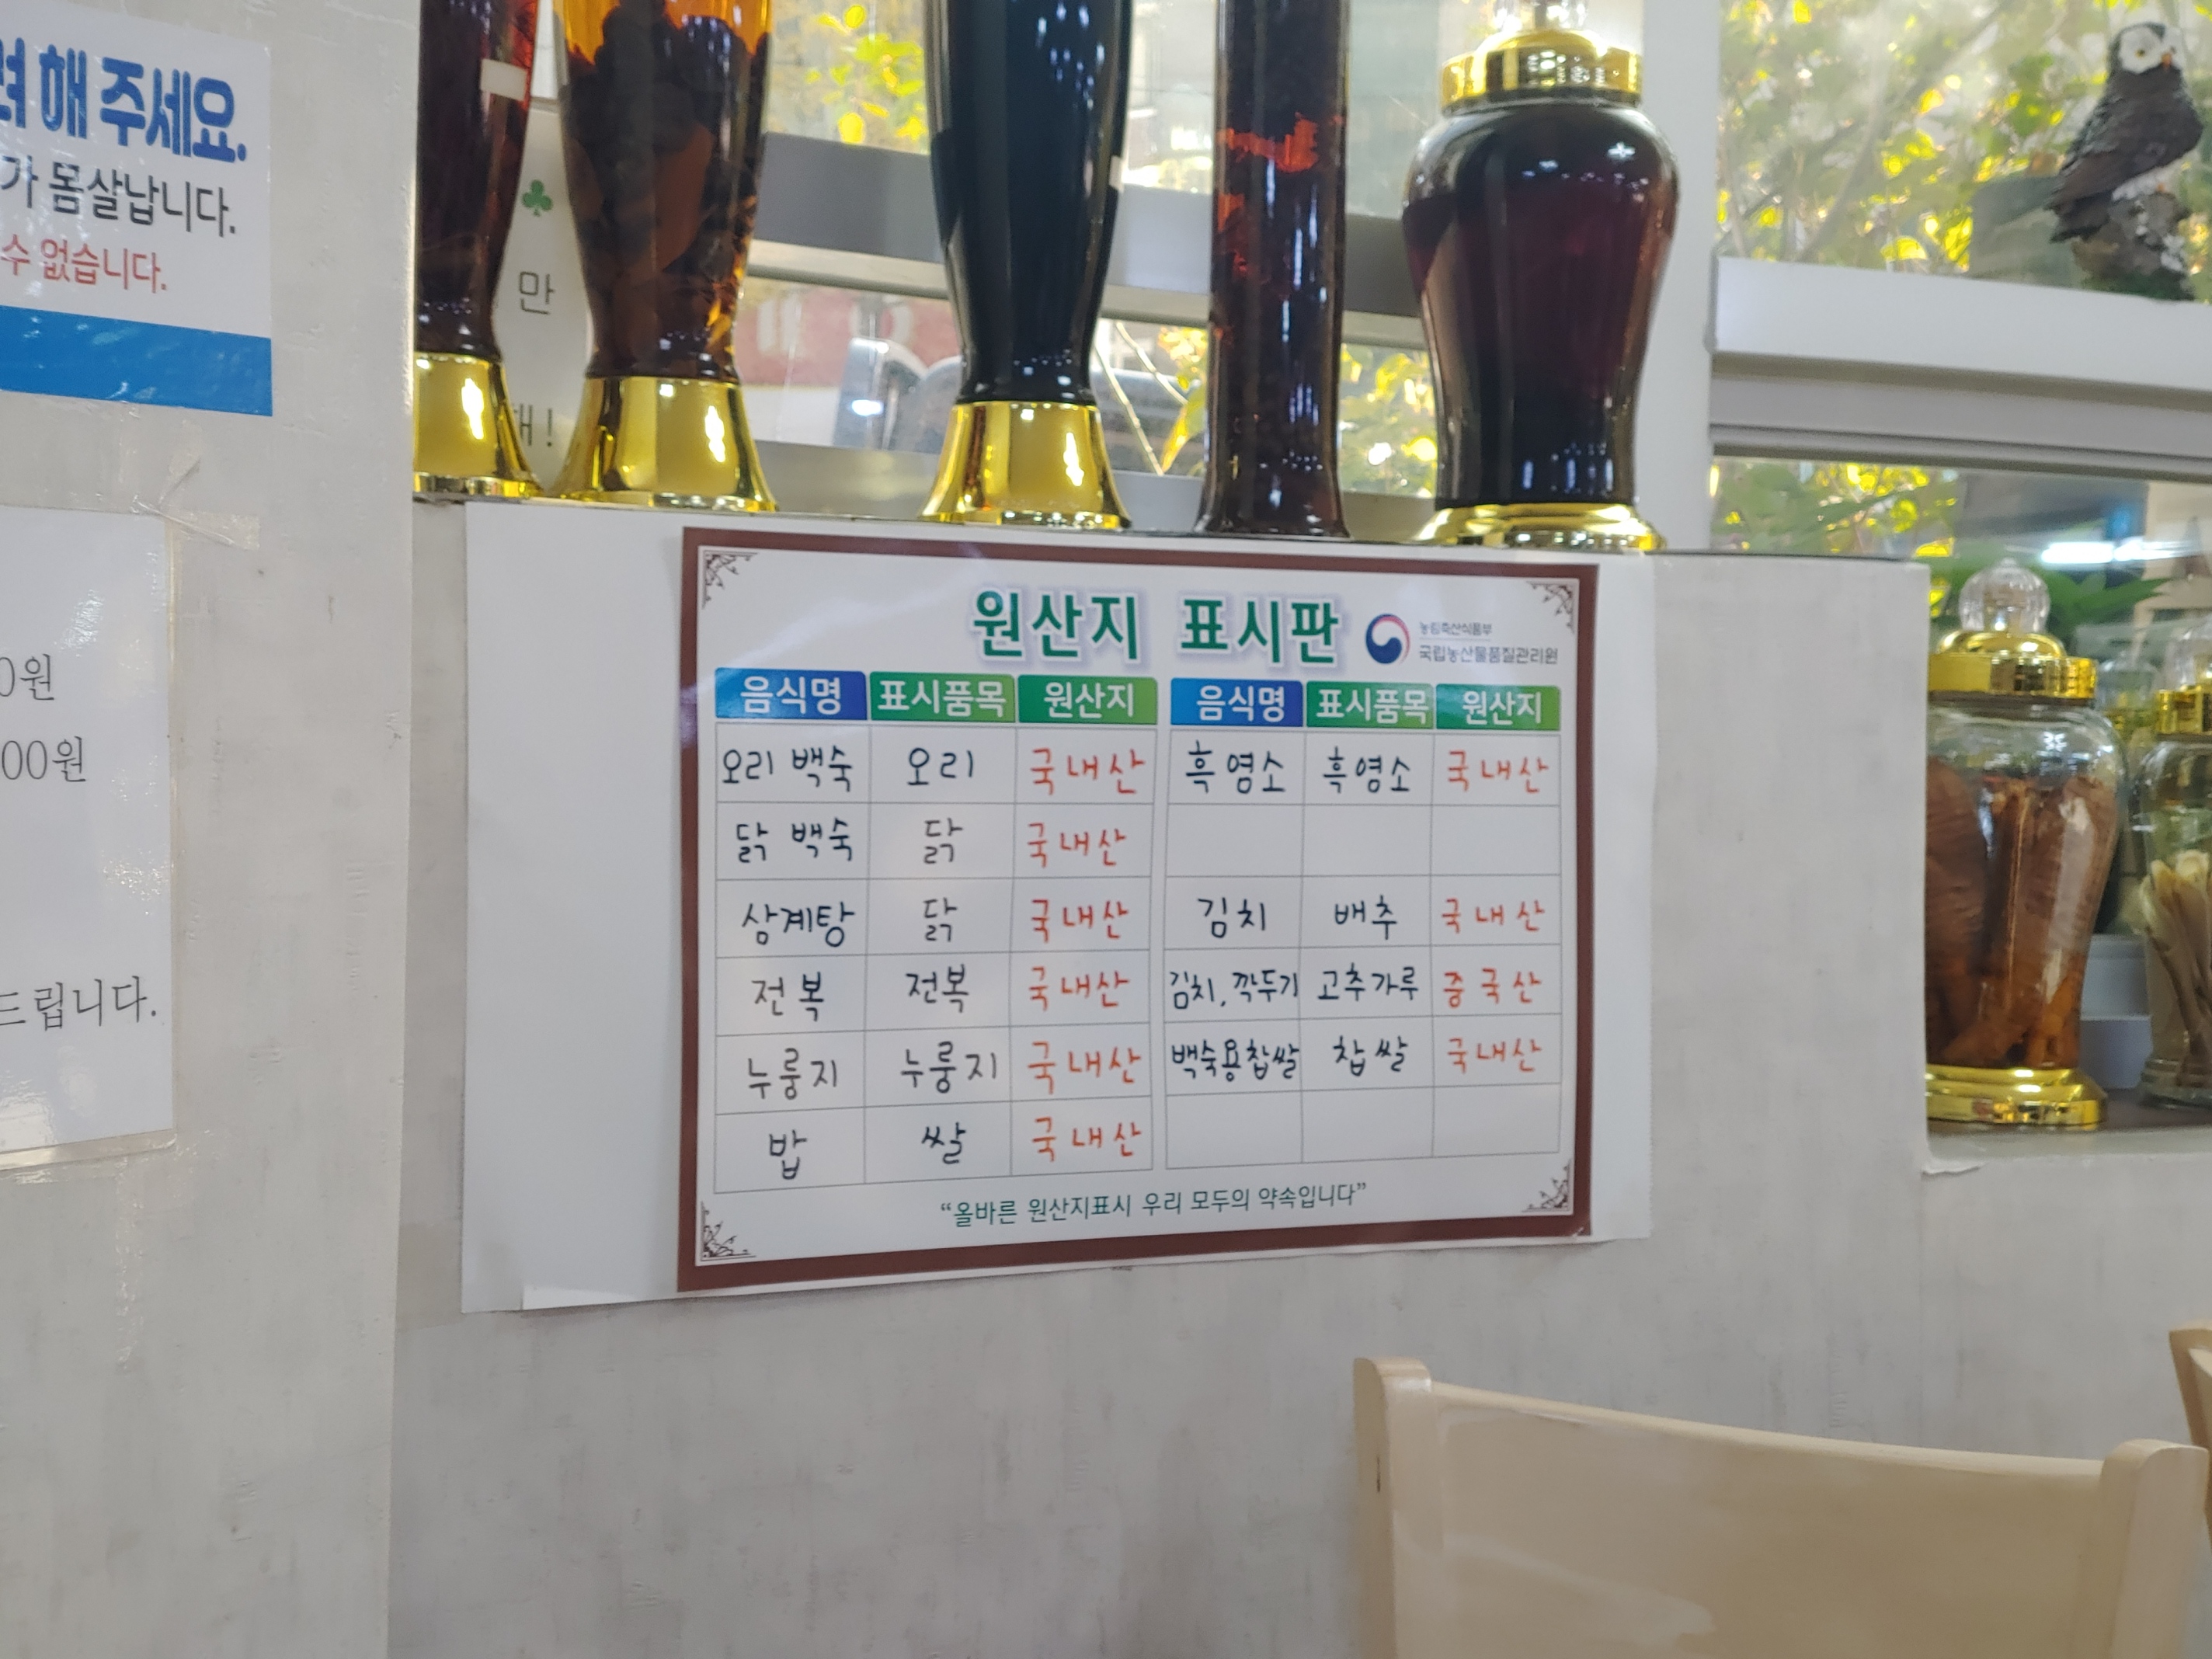 해 주세요.
가 몸살납니다.
수 없습니다.
만
!
0원
00원
드립니다.
원산지 표시판
농림축산식품부
국립농산물품질관리원
음식명 표시품목 원산지 음식명 표시품목 원산지
오리 백숙 오리 국내산 흑염소 흑염소 국내산
닭 백숙 닭 국내산
삼계탕 닭 국내산 김치 배추 국내산
전복 전복 국내산 김치, 깍두기 고추가루 중국산
누룽지 누룽지 국내산 백숙용찹쌀 찹쌀 국내산
밥 쌀 국내산
“올바른 원산지표시 우리 모두의 약속입니다”